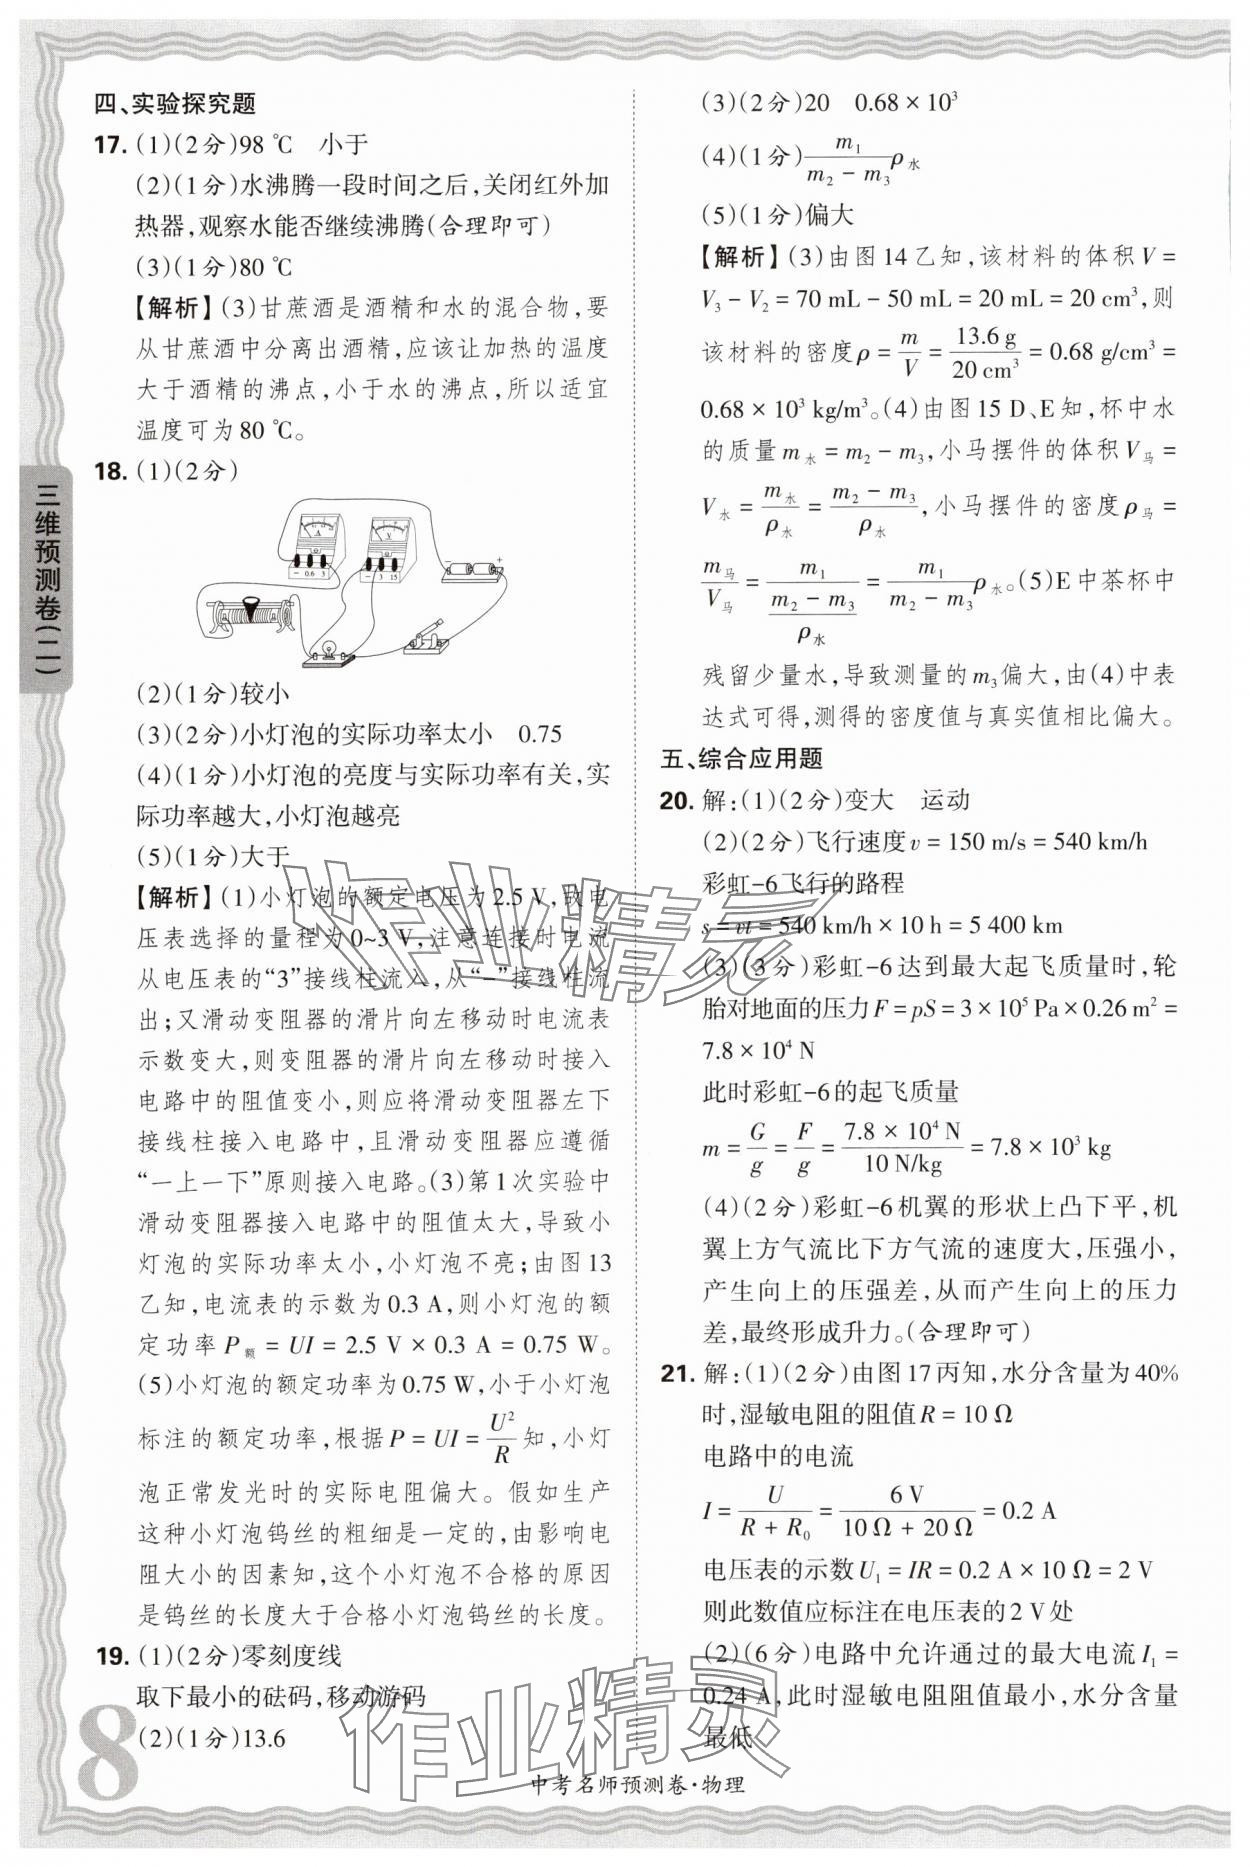 四、实验探究题
17. (1)(2分)98 ℃　小于
(2)(1分)水沸腾一段时间之后,关闭红外加
热器,观察水能否继续沸腾(合理即可)
(3)(1分)80 ℃
【解析】(3)甘蔗酒是酒精和水的混合物,要
从甘蔗酒中分离出酒精,应该让加热的温度
大于酒精的沸点,小于水的沸点,所以适宜
温度可为80 ℃。
18. (1)(2分)
A
V
− 0.6 3
− 3 15
− +
(2)(1分)较小
(3)(2分)小灯泡的实际功率太小　0.75
(4)(1分)小灯泡的亮度与实际功率有关,实
际功率越大,小灯泡越亮
(5)(1分)大于
【解析】(1)小灯泡的额定电压为2.5 V,故电
压表选择的量程为0~3 V,注意连接时电流
从电压表的“3”接线柱流入,从“−”接线柱流
出;又滑动变阻器的滑片向左移动时电流表
示数变大,则变阻器的滑片向左移动时接入
电路中的阻值变小,则应将滑动变阻器左下
接线柱接入电路中,且滑动变阻器应遵循
“一上一下”原则接入电路。(3)第1次实验中
滑动变阻器接入电路中的阻值太大,导致小
灯泡的实际功率太小,小灯泡不亮;由图13
乙知,电流表的示数为0.3 A,则小灯泡的额
定功率P额 = UI = 2.5 V × 0.3 A = 0.75 W。
(5)小灯泡的额定功率为0.75 W,小于小灯泡
标注的额定功率,根据P = UI = U²/R 知,小灯
泡正常发光时的实际电阻偏大。假如生产
这种小灯泡钨丝的粗细是一定的,由影响电
阻大小的因素知,这个小灯泡不合格的原因
是钨丝的长度大于合格小灯泡钨丝的长度。
19. (1)(2分)零刻度线
取下最小的砝码,移动游码
(2)(1分)13.6
(3)(2分)20　0.68 × 10³
(4)(1分) m₁/(m₂ − m₃) ρ水
(5)(1分)偏大
【解析】(3)由图14乙知,该材料的体积V =
V₃ − V₂ = 70 mL − 50 mL = 20 mL = 20 cm³,则
该材料的密度ρ = m/V = 13.6 g/20 cm³ = 0.68 g/cm³ =
0.68 × 10³ kg/m³。(4)由图15 D、E知,杯中水
的质量m水 = m₂ − m₃,小马摆件的体积V马 =
V水 = m水/ρ水 = (m₂ − m₃)/ρ水,小马摆件的密度ρ马 =
m马/V马 = m₁/((m₂ − m₃)/ρ水) = m₁/(m₂ − m₃) ρ水。(5)E中茶杯中
残留少量水,导致测量的m₃偏大,由(4)中表
达式可得,测得的密度值与真实值相比偏大。
五、综合应用题
20. 解:(1)(2分)变大　运动
(2)(2分)飞行速度v = 150 m/s = 540 km/h
彩虹-6飞行的路程
s = vt = 540 km/h × 10 h = 5 400 km
(3)(3分)彩虹-6达到最大起飞质量时,轮
胎对地面的压力F = pS = 3 × 10⁵ Pa × 0.26 m² =
7.8 × 10⁴ N
此时彩虹-6的起飞质量
m = G/g = F/g = 7.8 × 10⁴ N/10 N/kg = 7.8 × 10³ kg
(4)(2分)彩虹-6机翼的形状上凸下平,机
翼上方气流比下方气流的速度大,压强小,
产生向上的压强差,从而产生向上的压力
差,最终形成升力。(合理即可)
21. 解:(1)(2分)由图17丙知,水分含量为40%
时,湿敏电阻的阻值R = 10 Ω
电路中的电流
I = U/(R + R₀) = 6 V/(10 Ω + 20 Ω) = 0.2 A
电压表的示数U₁ = IR = 0.2 A × 10 Ω = 2 V
则此数值应标注在电压表的2 V处
(2)(6分)电路中允许通过的最大电流I₁ =
0.24 A,此时湿敏电阻阻值最小,水分含量
最低
三维预测卷(二)
8
中考名师预测卷·物理
作业精灵
作业精灵